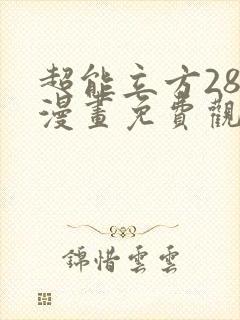 超能立方28
漫畫免費觀
錦惜雲雲